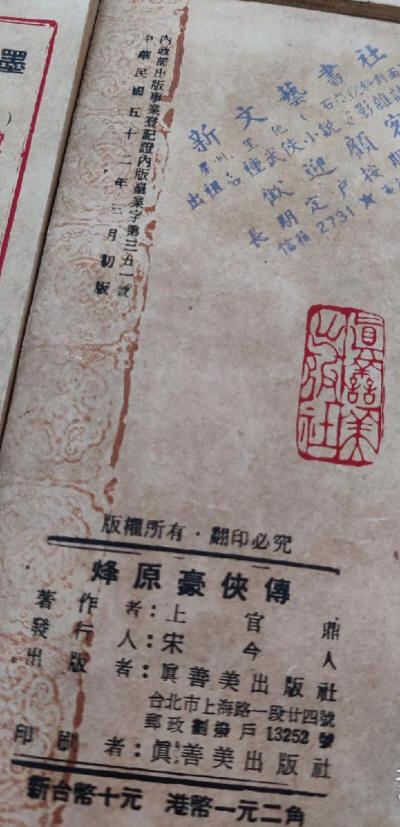 內政部出版事業登記證內版臺業字第三五一號
中華民國五十二年三月初版
新文藝書社
出租各種武俠小說電影雜誌
歡迎顧客
長期定戶按期
信箱2731
眞善美出版社
版權所有·翻印必究
烽原豪俠傳
著作者：上官鼎
發行人：宋今人
出版者：眞善美出版社
台北市上海路一段廿四號
郵政劃撥戶13252號
印刷者：眞善美出版社
新台幣十元 港幣一元二角
墨